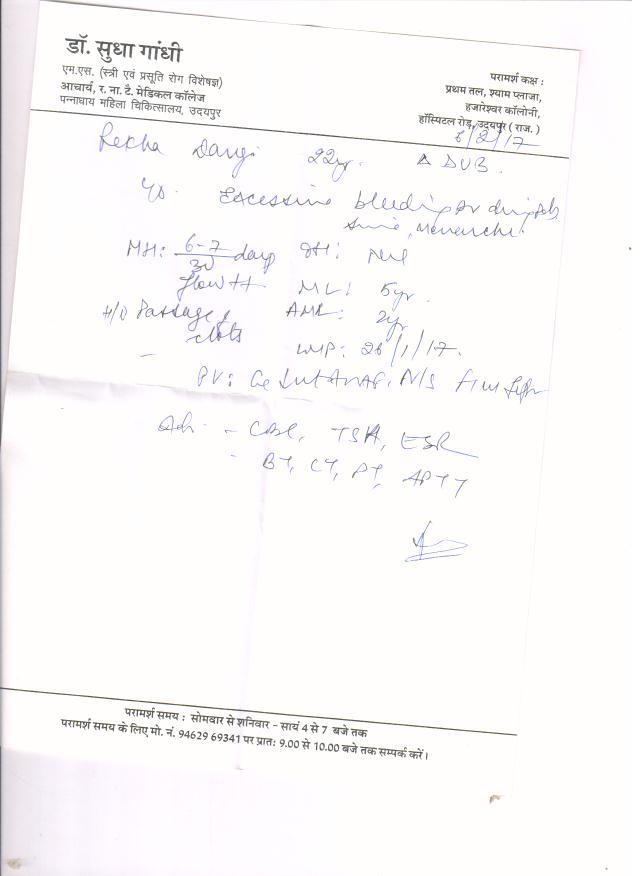 डॉ. सुधा गांधी
एम.एस. (स्त्री एवं प्रसूति रोग विशेषज्ञ)
आचार्य, र. ना. टै. मेडिकल कॉलेज
पन्नाधाय महिला चिकित्सालय, उदयपुर
परामर्श कक्ष :
प्रथम तल, श्याम प्लाजा,
हजारेश्वर कॉलोनी,
हॉस्पिटल रोड़, उदयपुर ( राज. )
6/2/17
Rekha Dangi 22yr. Δ DUB.
Excessive bleeding PV during
since menarche.
MH: 6-7/30 days OH: Nil
flow ++ ML: 5yr.
H/O Passage of clots AML: 2yr
LMP: 28/1/17.
PV: Cx Ut N/S
Adv. - CBC, TSH, ESR
- BT, CT, PT, APTT
परामर्श समय : सोमवार से शनिवार - सायं 4 से 7 बजे तक
परामर्श समय के लिए मो. नं. 94629 69341 पर प्रातः 9.00 से 10.00 बजे तक सम्पर्क करें।